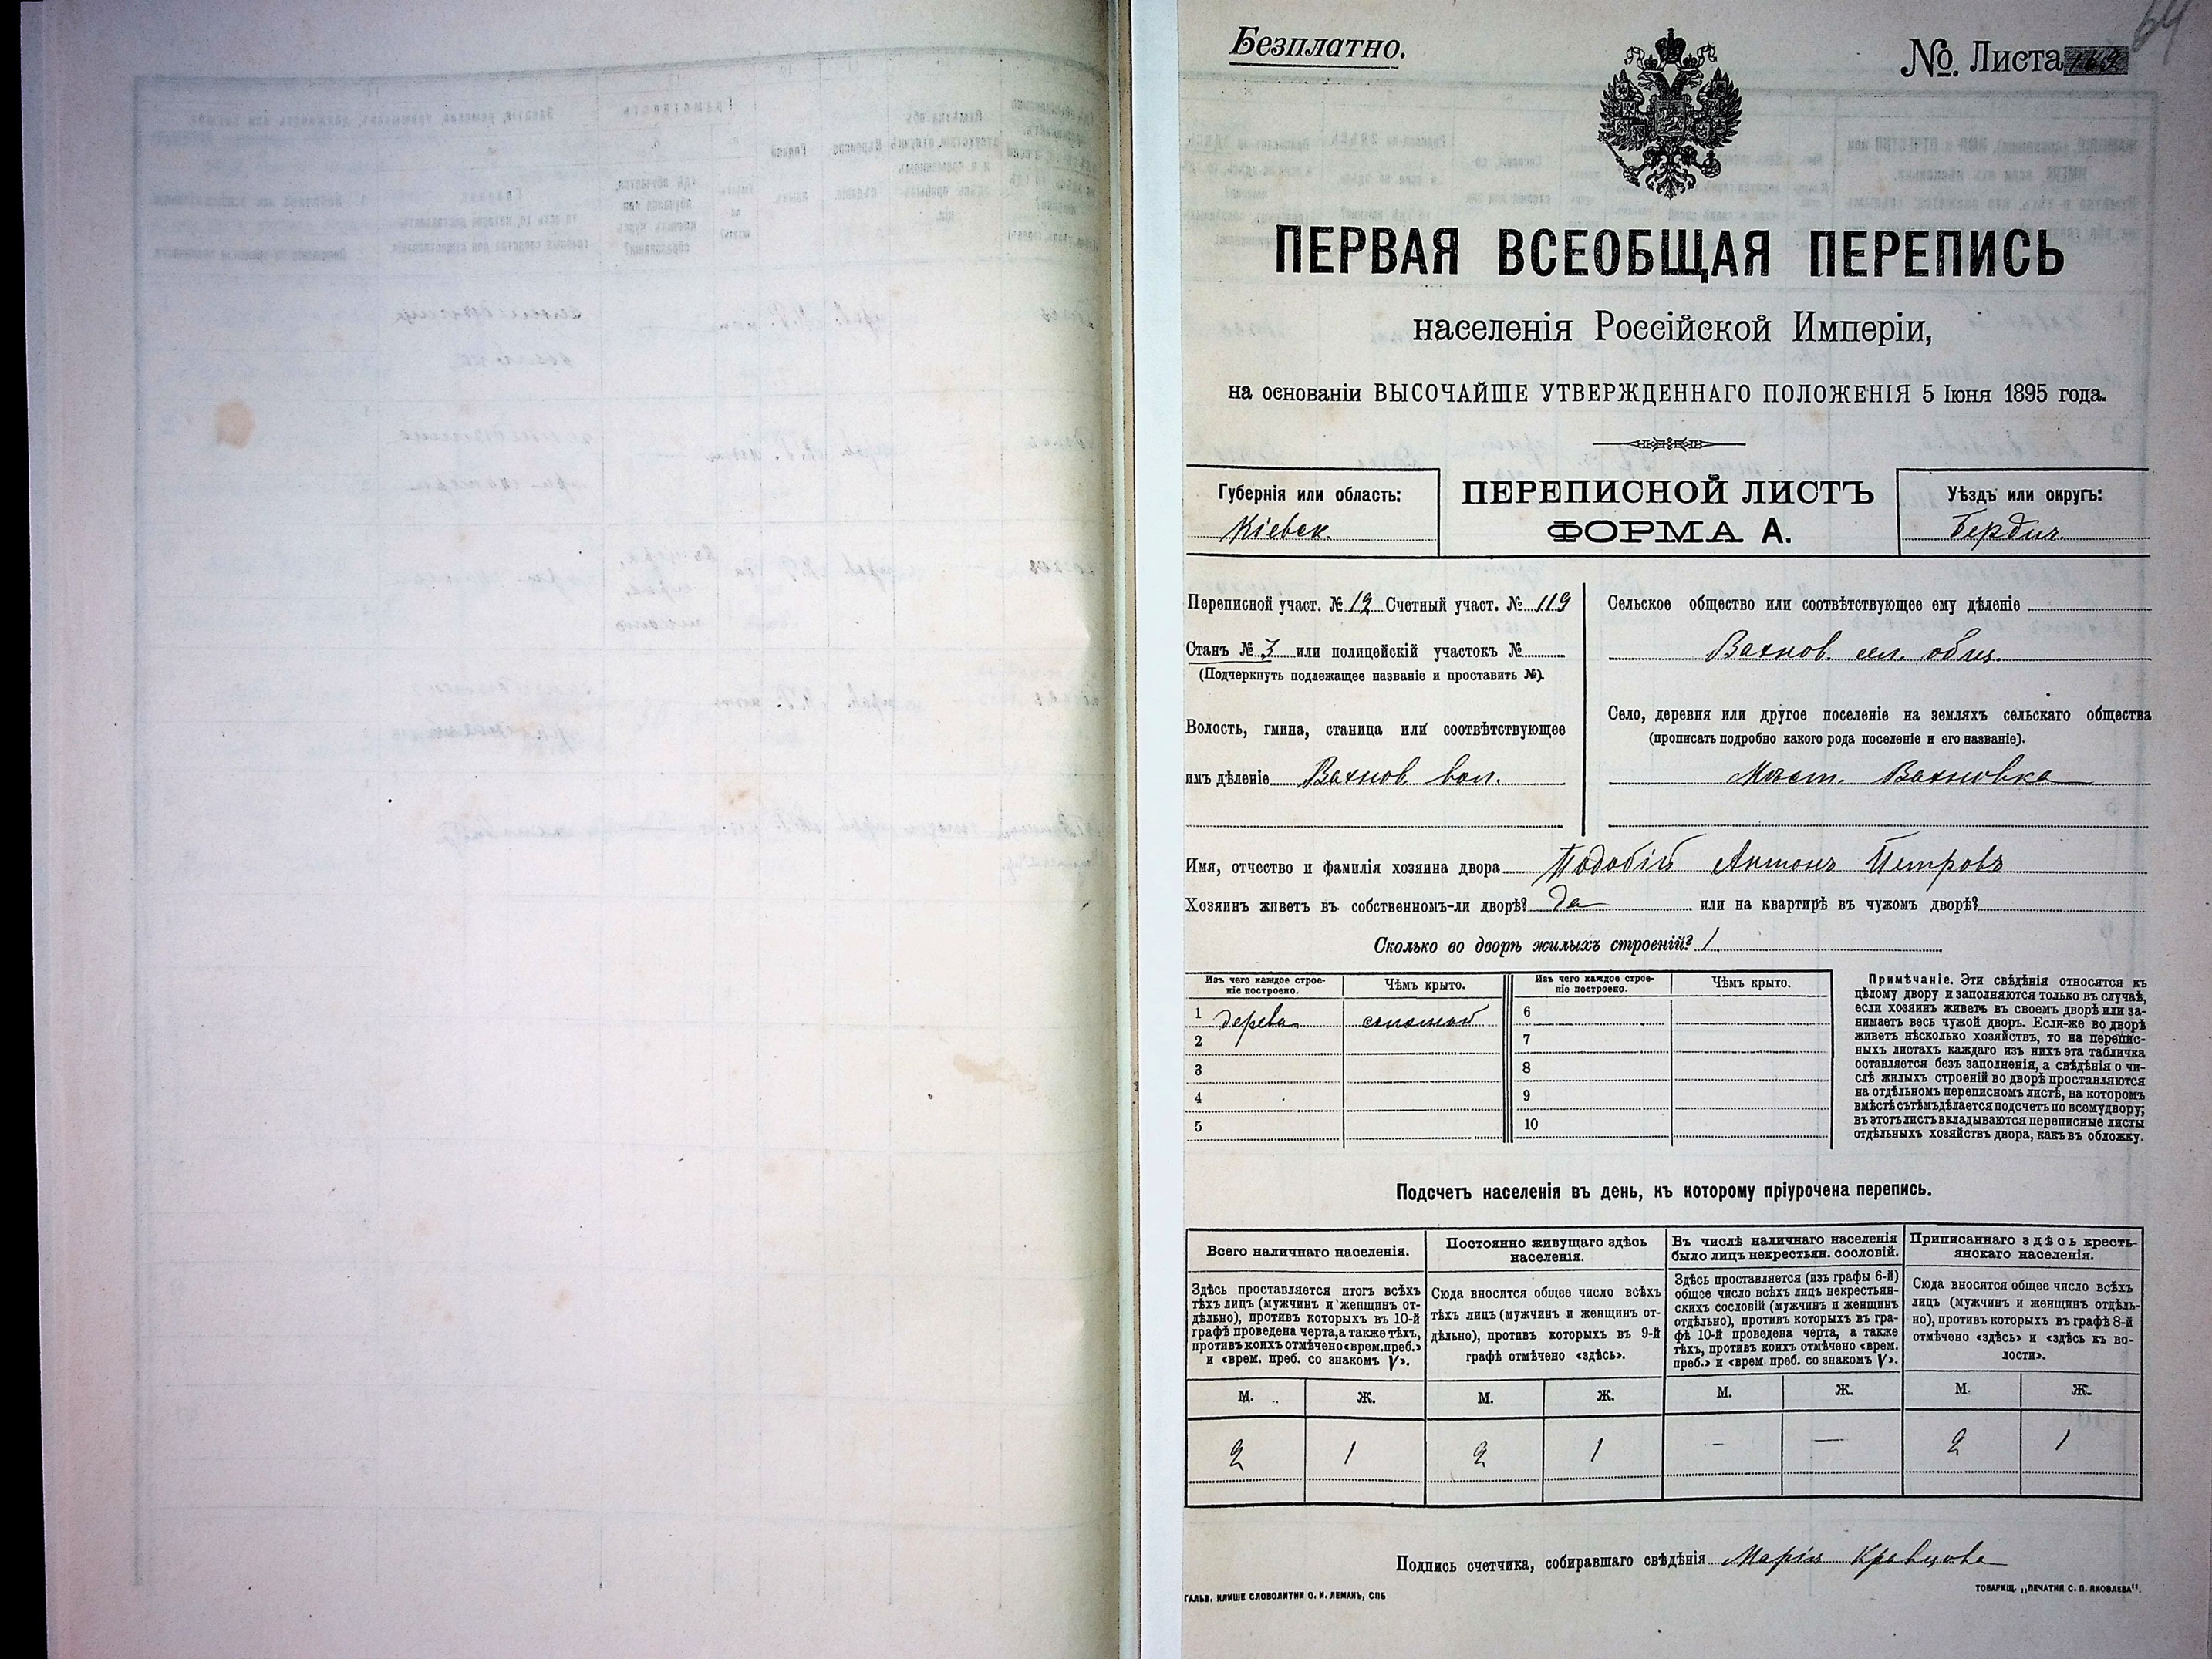 Безплатно.
№. Листа
64
ПЕРВАЯ ВСЕОБЩАЯ ПЕРЕПИСЬ
населенія Россійской Имперіи,
на основаніи ВЫСОЧАЙШЕ УТВЕРЖДЕННАГО ПОЛОЖЕНІЯ 5 Іюня 1895 года.
Губернія или область:
Кіевск.
ПЕРЕПИСНОЙ ЛИСТЪ
ФОРМА А.
Уѣздъ или округъ:
Бердич.
Переписной участ. № 12 Счетный участ. № 119
Станъ № 3 или полицейскій участокъ №
(Подчеркнуть подлежащее названіе и проставить №).
Волость, гмина, станица или соотвѣтствующее
имъ дѣленіе Вахнов. вол.
Сельское общество или соотвѣтствующее ему дѣленіе
Вахнов. сел. общ.
Село, деревня или другое поселеніе на земляхъ сельскаго общества
(прописать подробно какого рода поселеніе и его названіе).
Мѣст. Вахновка
Имя, отчество и фамилія хозяина двора Подобій Антонъ Петровъ
Хозяинъ живетъ въ собственномъ-ли дворѣ? Да или на квартирѣ въ чужомъ дворѣ?
Сколько во дворѣ жилыхъ строеній? 1
Изъ чего каждое строе-
ніе построено.
Чѣмъ крыто.
Изъ чего каждое строе-
ніе построено.
Чѣмъ крыто.
1 дерева соломой 6
2 7
3 8
4 9
5 10
Примѣчаніе. Эти свѣдѣнія относятся къ
цѣлому двору и заполняются только въ случаѣ,
если хозяинъ живетъ въ своемъ дворѣ или за-
нимаетъ весь чужой дворъ. Если-же во дворѣ
живетъ нѣсколько хозяйствъ, то на перепис-
ныхъ листахъ каждаго изъ нихъ эта табличка
оставляется безъ заполненія, а свѣдѣнія о чи-
слѣ жилыхъ строеній во дворѣ проставляются
на отдѣльномъ переписномъ листѣ, на которомъ
вмѣстѣ съ тѣмъ дѣлается подсчетъ по всему двору;
въ этотъ листъ вкладываются переписные листы
отдѣльныхъ хозяйствъ двора, какъ въ обложку.
Подсчетъ населенія въ день, къ которому пріурочена перепись.
Всего наличнаго населенія.
Здѣсь проставляется итогъ всѣхъ
тѣхъ лицъ (мужчинъ и женщинъ от-
дѣльно), противъ которыхъ въ 10-й
графѣ проведена черта, а также тѣхъ,
противъ коихъ отмѣчено «врем. преб.»
и «врем. преб. со знакомъ V».
Постоянно живущаго здѣсь
населенія.
Сюда вносится общее число всѣхъ
тѣхъ лицъ (мужчинъ и женщинъ от-
дѣльно), противъ которыхъ въ 9-й
графѣ отмѣчено «здѣсь».
Въ числѣ наличнаго населенія
было лицъ некрестьян. сословій.
Здѣсь проставляется (изъ графы 6-й)
общое число всѣхъ лицъ некрестьян-
скихъ сословій (мужчинъ и женщинъ
отдѣльно), противъ которыхъ въ гра-
фѣ 10-й проведена черта, а также
тѣхъ, противъ коихъ отмѣчено «врем.
преб.» и «врем. преб. со знакомъ V».
Приписаннаго здѣсь кресть-
янскаго населенія.
Сюда вносится общее число всѣхъ
лицъ (мужчинъ и женщинъ отдѣль-
но), противъ которыхъ въ графѣ 8-й
отмѣчено «здѣсь» и «здѣсь къ во-
лости».
М. Ж. М. Ж. М. Ж. М. Ж.
2 1 2 1 — — 2 1
Подпись счетчика, собиравшаго свѣдѣнія Марія Кравцова
ГАЛЬВ. КЛИШЕ СЛОВОЛИТНИ О. И. ЛЕМАНЪ, СПБ
ТОВАРИЩ. „ПЕЧАТНЯ С. П. ЯКОВЛЕВА“.